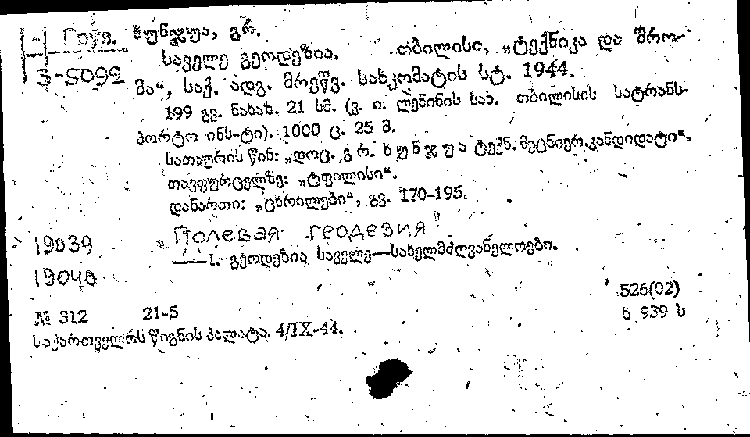 Груз. ხუნჯუა, გრ.
საველე გეოდეზია. თბილისი, „ტექნიკა და შრო-
3-5092 მა“, საქ. ადგ. მრეწვ. სახკომატის სტ. 1944.
199 გვ. ნახაზ. 21 სმ. (ვ. ი. ლენინის სახ. თბილისის სატრანს-
პორტო ინს-ტი). 1000 ც. 25 მ.
სათაურის წინ: „დოც. გრ. ხუნჯუა ტექნ. მეცნიერ. კანდიდატი“.
თავფურცელზე: „ტფილისი“.
დანართი: „ცხრილები“, გვ. 170-195.
19039 "Полевая геодезия"
1. გეოდეზია საველე—სახელმძღვანელოები.
19040
526(02)
№ 312 21-5 ხ 939 ს
საქართველოს წიგნის პალატა. 4/IX-44.